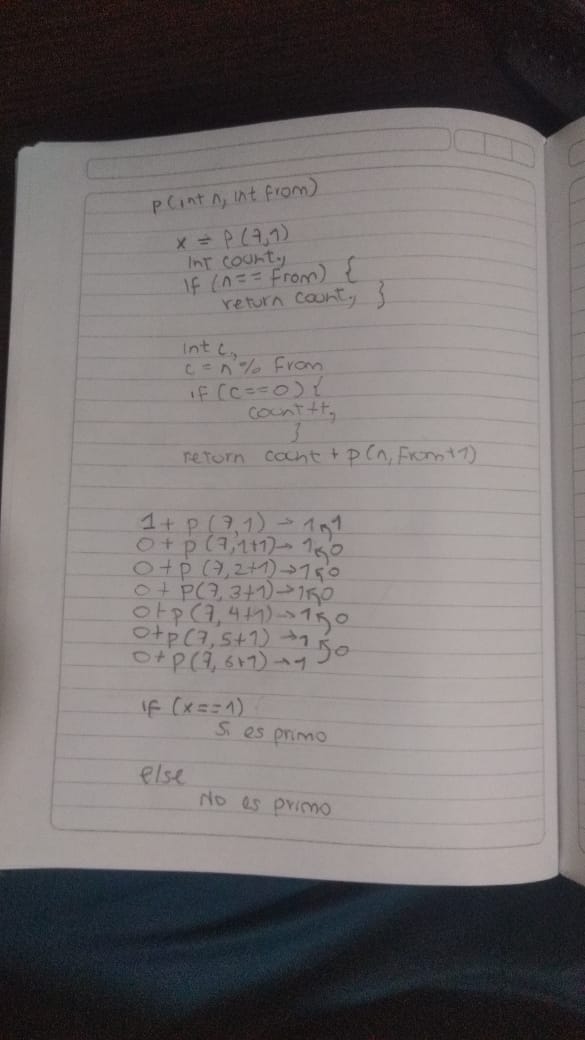 p(int n, int from)
x = p(7,1)
Int count;
if (n == from) {
return count; }
int c;
c = n % from
if (c==0) {
count++;
}
return count + p(n, from+1)
1 + p(7,1) → 1
0 + p(7,1+1) → 1
0 + p(7,2+1) → 1
0 + p(7,3+1) → 1
0 + p(7,4+1) → 1
0 + p(7,5+1) → 1
0 + p(7,6+1) → 1
if (x==1)
Si es primo
else
No es primo